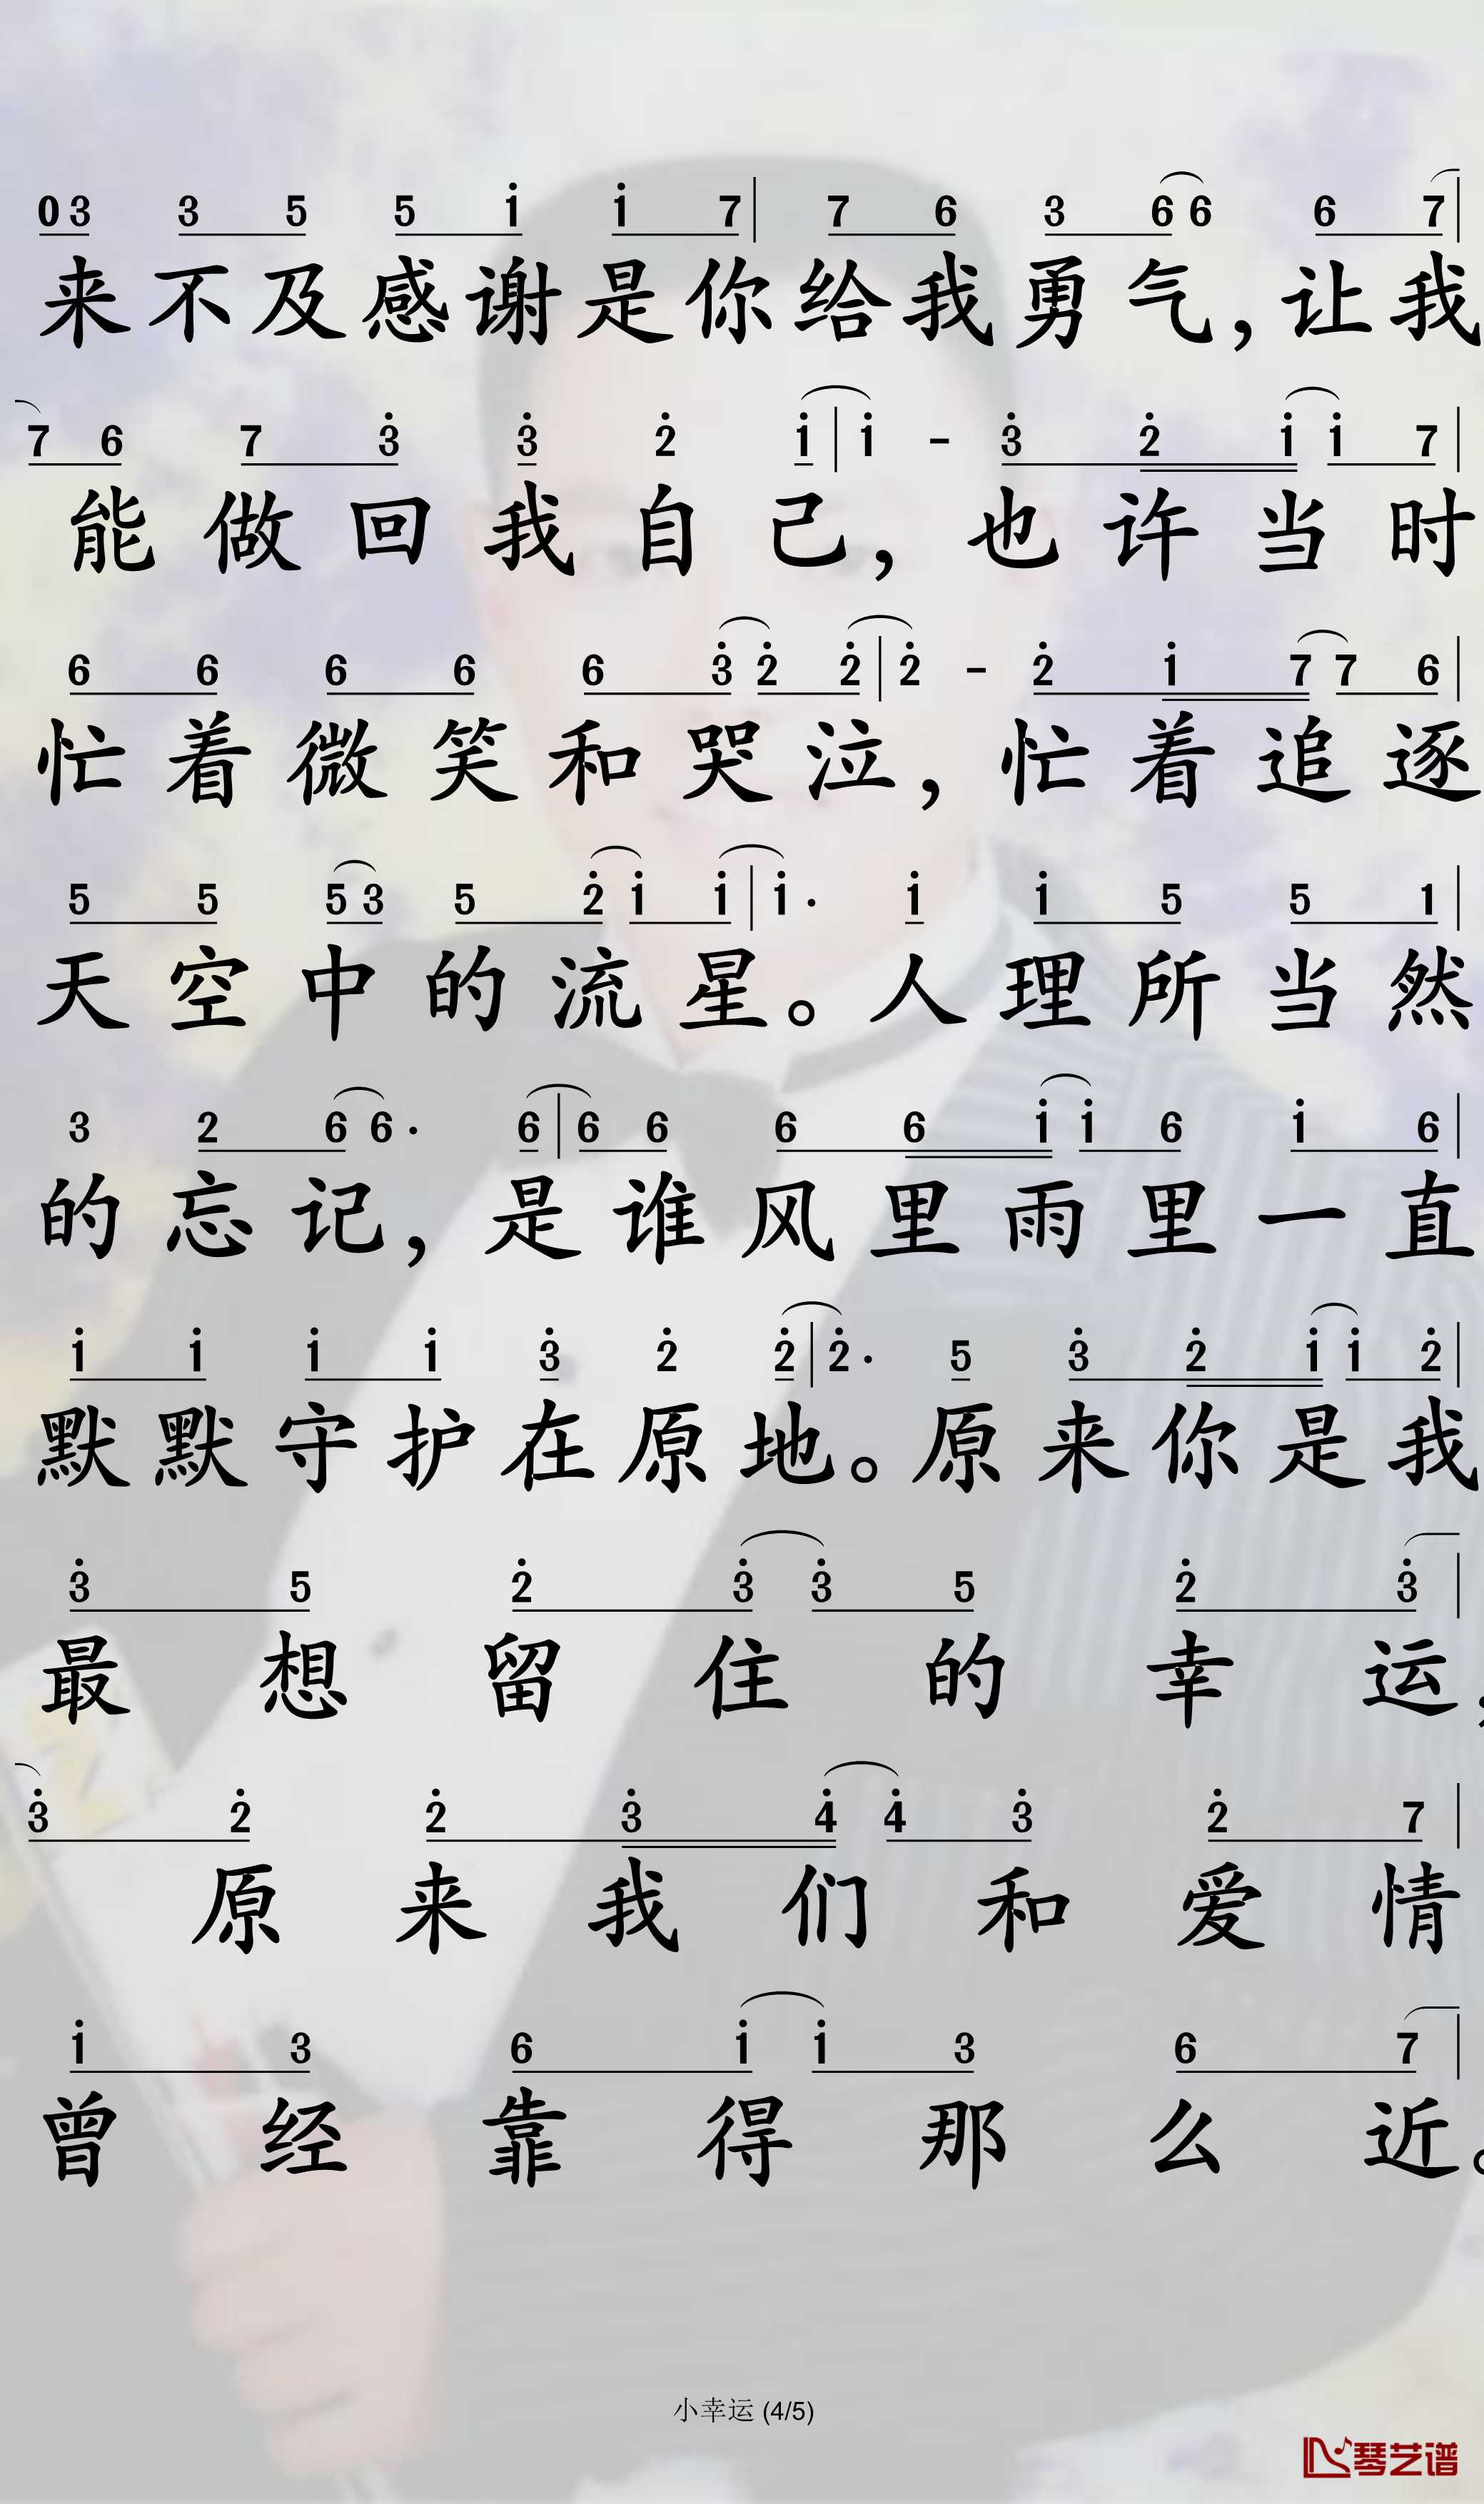 03 3 5 5 i i 7 | 7 6 3 66 6 7 |
来不及感谢是你给我勇气,让我
7 6 7 3̇ 3̇ 2̇ i | i - 3̇ 2̇ i i 7 |
能做回我自己,也许当时
6 6 6 6 6 3̇ 2̇ 2̇ | 2̇ - 2̇ i 7 7 6 |
忙着微笑和哭泣,忙着追逐
5 5 53 5 2̇ i i | i· i i 5 5 1 |
天空中的流星。人理所当然
3 2 6 6· 6 | 6 6 6 6 i i 6 i 6 |
的忘记,是谁风里雨里一直
i i i i 3̇ 2̇ 2̇ | 2̇· 5 3̇ 2̇ i i 2̇ |
默默守护在原地。原来你是我
3̇ 5 2̇ 3̇ 3̇ 5 2̇ 3̇ |
最想留住的幸运,
3̇ 2̇ 2̇ 3̇ 4̇ 4̇ 3̇ 2̇ 7 |
原来我们和爱情
i 3 6 i i 3 6 7 |
曾经靠得那么近。
小幸运 (4/5)
琴艺谱